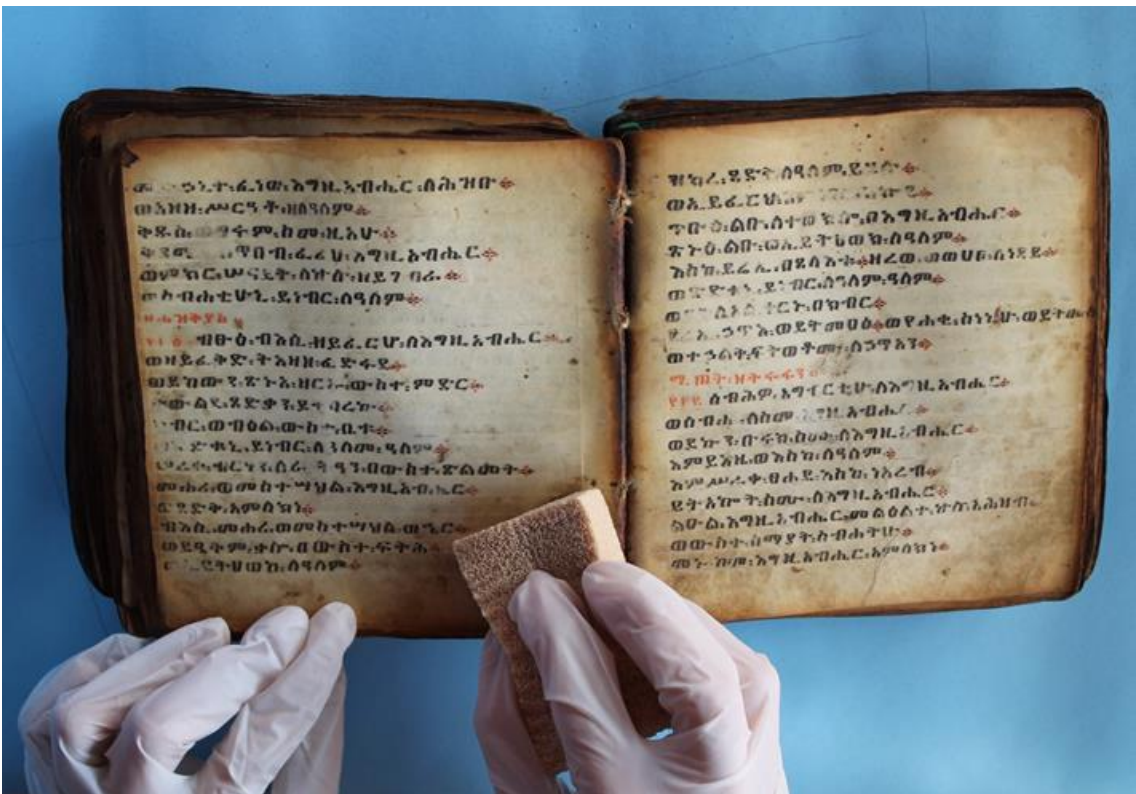 ፈነወ፡እግዚአብሔር፡ለሕዝቡ።
ወአዘዘ፡ሥርዓቶ፡ዘለዓለም።
ቅዱስ፡ወግሩም፡ስሙ፡ዚአሁ።
ጥበብ፡ፈሪሀ፡እግዚአብሔር።
ወምክር፡ሠናይት፡ለኵሉ፡ዘይገባሪ።
ወስብሐቲሁኒ፡ይነብር፡ለዓለም።
ብፁዕ፡ብእሲ፡ዘይፈርህ፡ለእግዚአብሔር።
ወዘይፈቅድ፡ትእዛዘ፡ፈድፋደ።
ወይከውን፡ጽኑአ፡ዘርዑ፡ውስተ፡ምድር።
ትውልደ፡ጻድቃን፡ይትባረኩ።
ክብር፡ወብዕል፡ውስተ፡ቤቱ።
ጽድቁኒ፡ይነብር፡ለዓለመ፡ዓለም።
በውስተ፡ጽልመት።
መሐሪ፡ወመስተሣህል፡እግዚአብሔር።
ጻድቅ፡አምላክነ።
ብእሲ፡መሐሪ፡ወመስተሣህል፡ወኄር።
ወይዔቅም፡ቃሎ፡በውስተ፡ፍትሕ።
ወኢይትሀወክ፡ለዓለም።
ዝክረ፡ጻድቅ፡ለዓለም፡ይሄሉ።
ወኢይፈርህ
ጥቡዕ፡ልቡ፡ለተወክሎ፡በእግዚአብሔር።
ጽኑዕ፡ልቡ፡ወኢይትሀወክ፡ለዓለም።
እስከ፡ይሬኢ፡በጸላእቱ።ዘረወ፡ወወሀበ፡ለነዳይ።
ወጽድቁኒ፡ይነብር፡ለዓለመ፡ዓለም።
በክብር።
ኃጥእ፡ወይትመዐዕ።ወየሐቂ፡ስነኒሁ፡ወይትመሰው
ወተኃልቅ፡ፍትወቶሙ፡ለኃጥአን።
ሰብሕዎ፡አግብርቲሁ፡ለእግዚአብሔር።
ወሰብሑ፡ለስመ፡እግዚአብሔር
ወይኩን፡ቡሩክ፡ስሙ፡ለእግዚአብሔር።
እምይእዜ፡ወእስከ፡ለዓለም።
እምሥራቀ፡ፀሐይ፡እስከ፡ነአረብ።
ይትአኰት፡ስሙ፡ለእግዚአብሔር።
ልዑል፡እግዚአብሔር፡መልዕልተ፡ኵሉ፡አሕዛብ።
ወውስተ፡ሰማያት፡ስብሐቲሁ።
መኑ፡ከመ፡እግዚአብሔር፡አምላክነ።